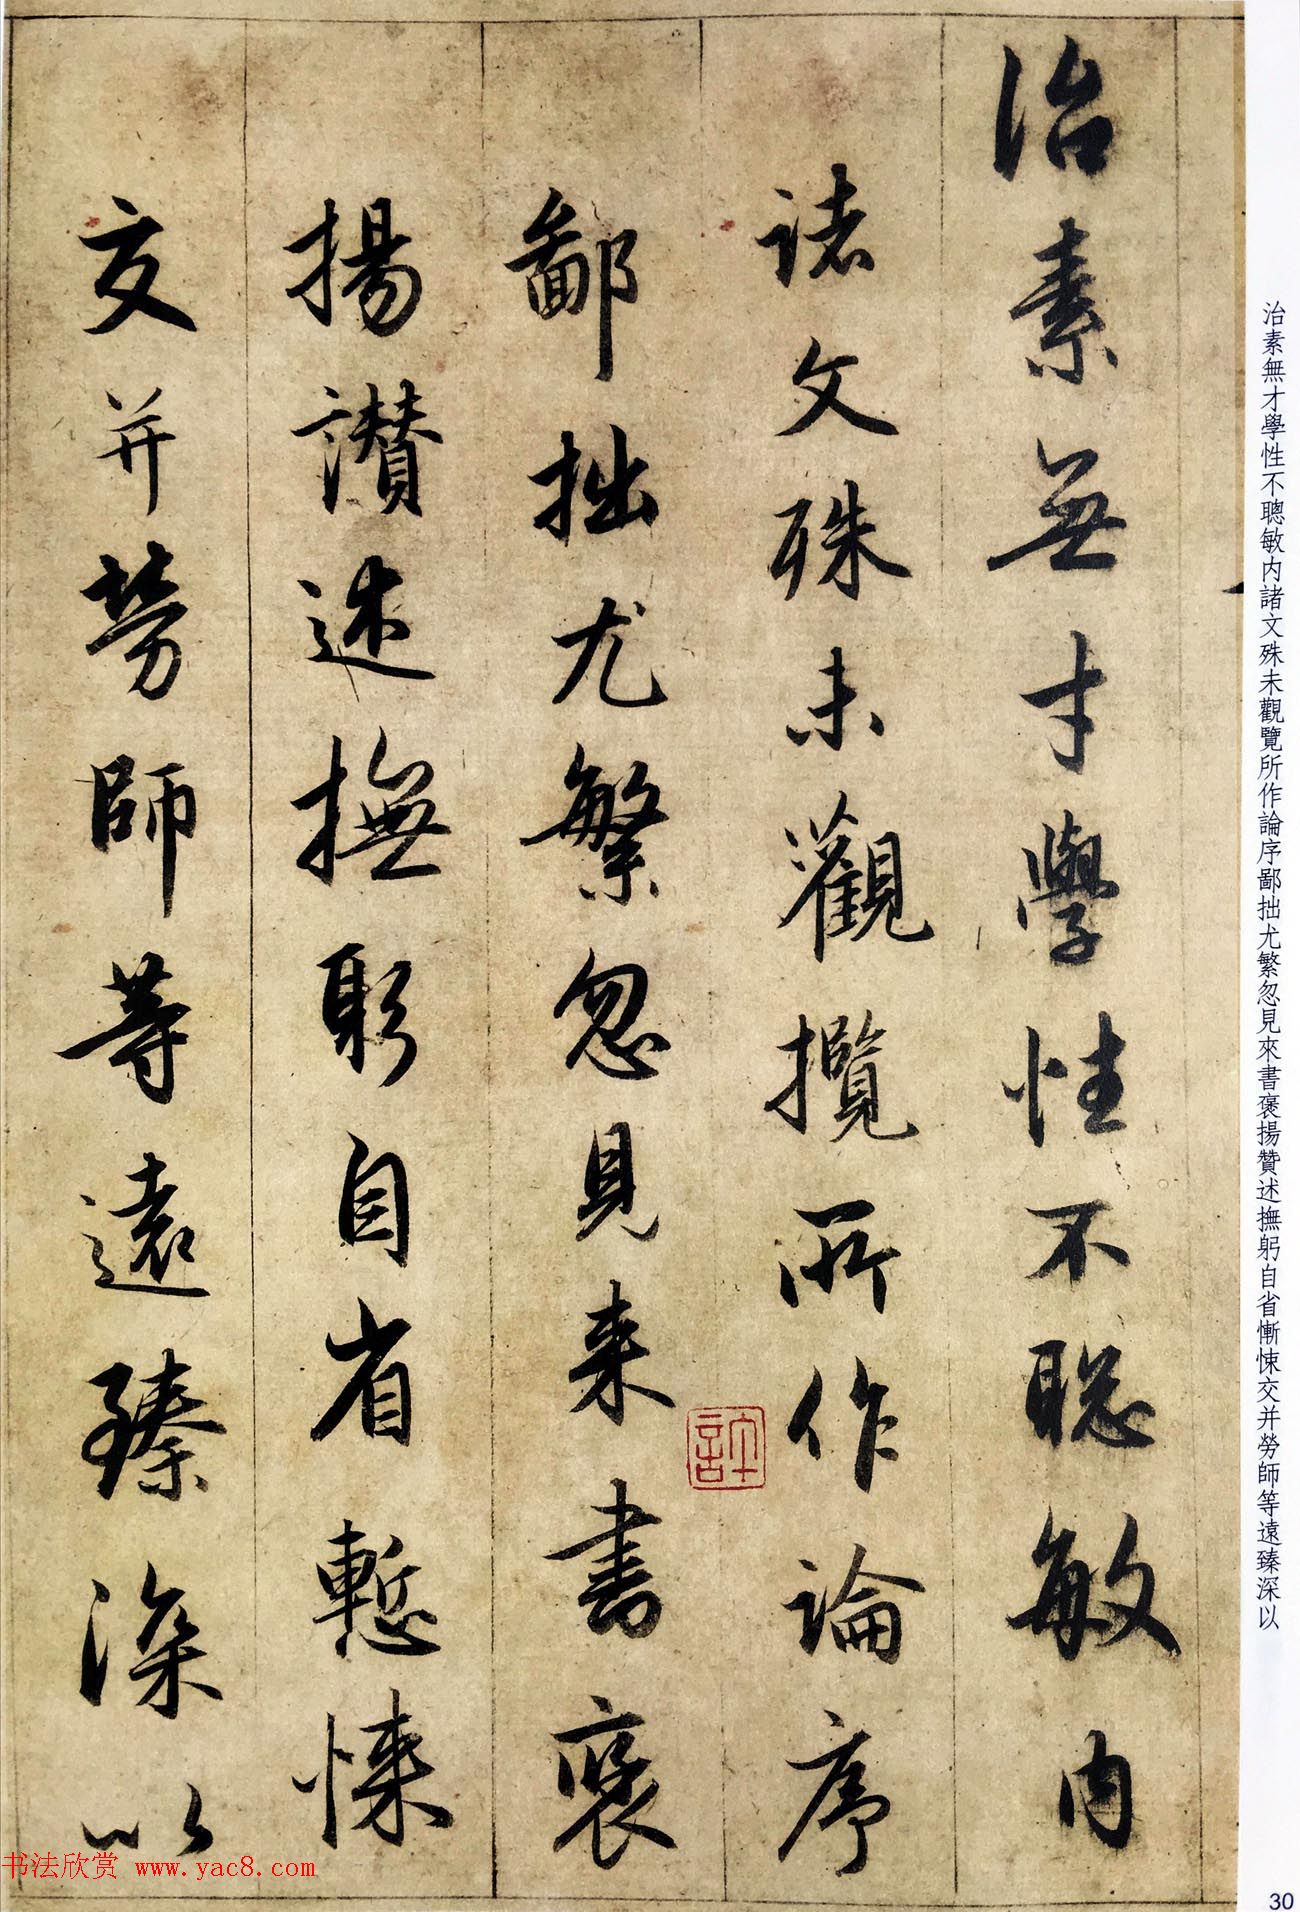 治素無才學性不聰敏内
諸文殊未觀攬所作論序
鄙拙尤繁忽見来書褒
揚讃述撫躬自省慙悚
交并勞師等遠臻深以
治素無才學性不聰敏内諸文殊未觀覽所作論序鄙拙尤繁忽見來書褒揚贊述撫躬自省慚悚交并勞師等遠臻深以
书法欣赏 www.yac8.com
30